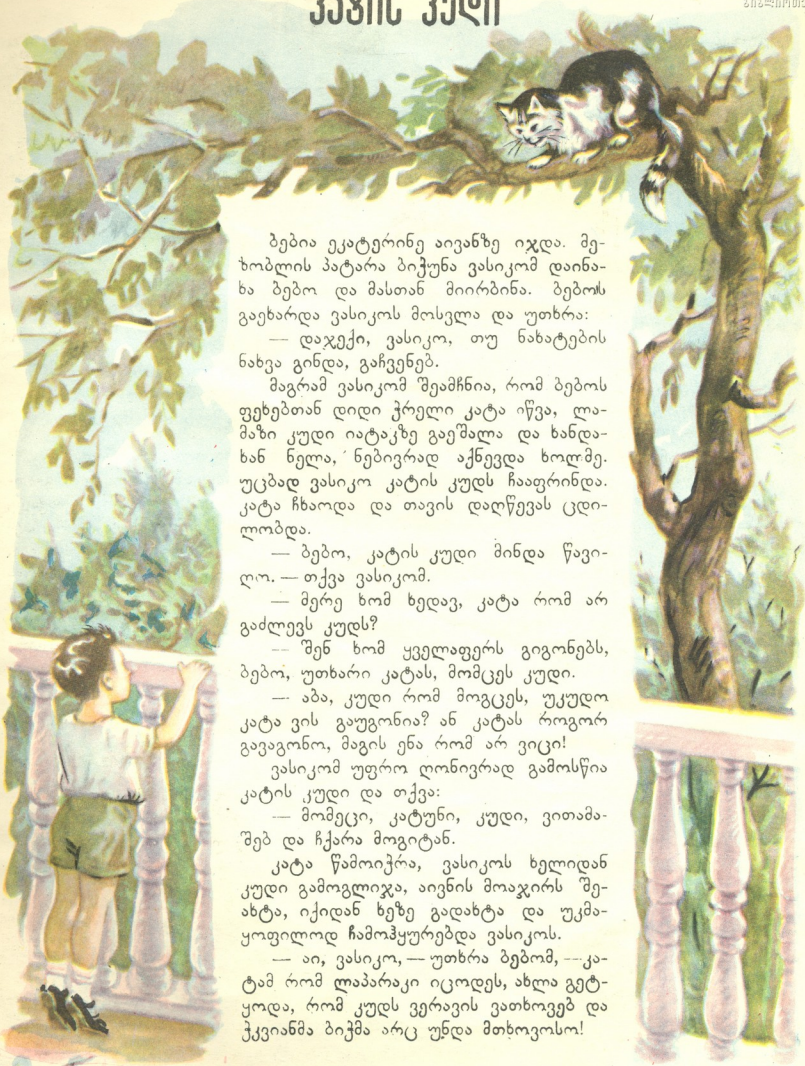 კატის კუდი
ბებია ეკატერინე აივანზე იჯდა. მე-
ზობლის პატარა ბიჭუნა ვასიკომ დაინა-
ხა ბებო და მასთან მიირბინა. ბებოს
გაეხარდა ვასიკოს მოსვლა და უთხრა:
— დაჯექი, ვასიკო, თუ ნახატების
ნახვა გინდა, გაჩვენებ.
მაგრამ ვასიკომ შეამჩნია, რომ ბებოს
ფეხებთან დიდი ჭრელი კატა იწვა, ლა-
მაზი კუდი იატაკზე გაეშალა და ხანდა-
ხან ნელა, ნებივრად აქნევდა ხოლმე.
უცბად ვასიკო კატის კუდს ჩააფრინდა.
კატა ჩხაოდა და თავის დაღწევას ცდი-
ლობდა.
— ბებო, კატის კუდი მინდა წავი-
ღო. — თქვა ვასიკომ.
— მერე ხომ ხედავ, კატა რომ არ
გაძლევს კუდს?
— შენ ხომ ყველაფერს გიგონებს,
ბებო, უთხარი კატას, მომცეს კუდი.
— აბა, კუდი რომ მოგცეს, უკუდო
კატა ვის გაუგონია? ან კატას როგორ
გავაგონო, მაგის ენა რომ არ ვიცი!
ვასიკომ უფრო ღონივრად გამოსწია
კატის კუდი და თქვა:
— მომეცი, კატუნი, კუდი, ვითამა-
შებ და ჩქარა მოგიტან.
კატა წამოიჭრა, ვასიკოს ხელიდან
კუდი გამოგლიჯა, აივნის მოაჯირს შე-
ახტა, იქიდან ხეზე გადახტა და უკმა-
ყოფილოდ ჩამოჰყურებდა ვასიკოს.
— აი, ვასიკო, — უთხრა ბებომ, — კა-
ტამ რომ ლაპარაკი იცოდეს, ახლა გეტ-
ყოდა, რომ კუდს ვერავის ვათხოვებ და
ჭკვიანმა ბიჭმა არც უნდა მთხოვოსო!